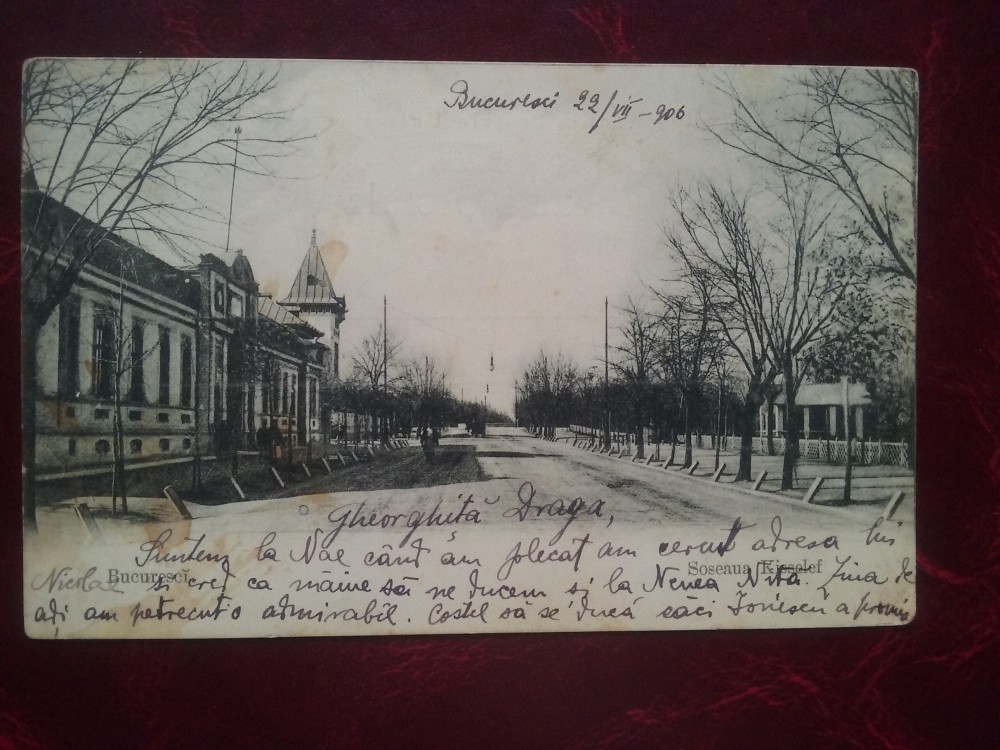 Bucuresci 22/VII - 906
Gheorghiță Draga,
Suntem la Nae când am plecat am cerut adresa lui
Nicolae si cred ca mâine să ne ducem și la Nenea Niță. Ziua de
Bucuresci
Soseaua Kisselef
aḑi am petrecut o admirabil. Costel să se ducă căci Ionescu a promis